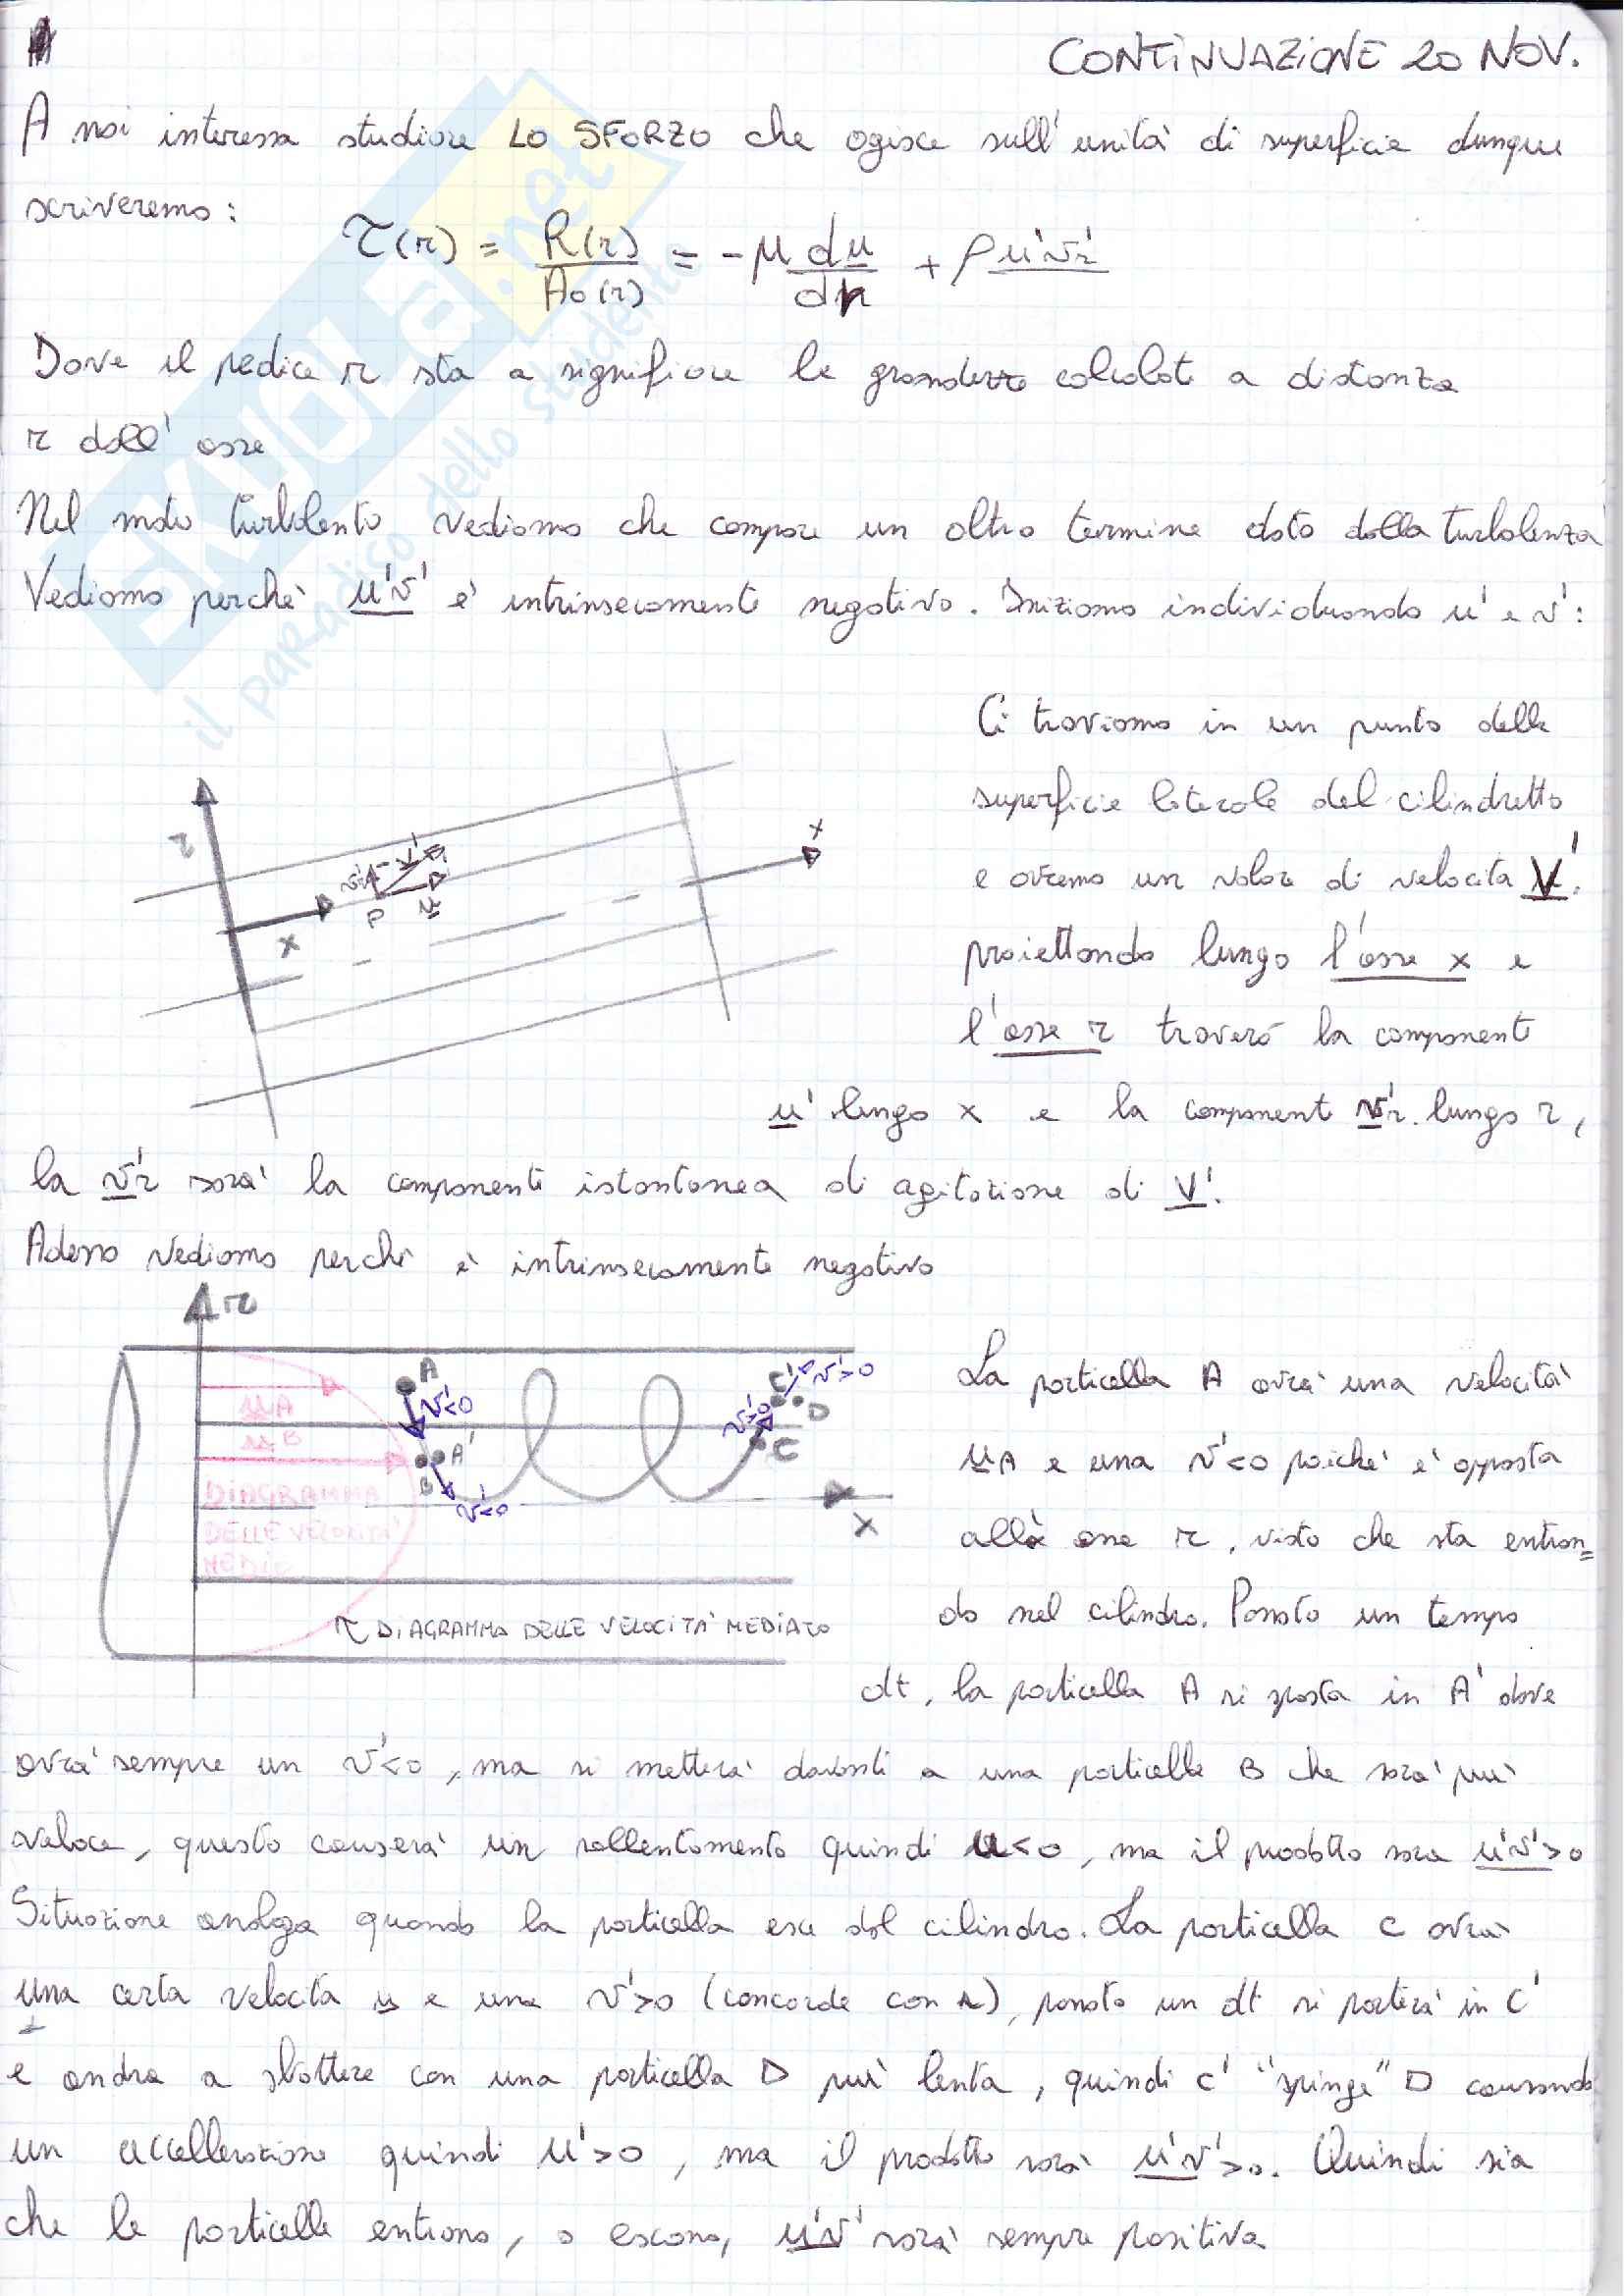 CONTINUAZIONE 20 NOV.
A noi interessa studiare LO SFORZO che agisce sull'unità di superficie dunque
scriveremo:
τ(r) = R(r)/A0(r) = -μ du/dr + ρ u'v'r
Dove il pedice r sta a significare le grandezze calcolate a distanza
r dall'asse
Nel moto turbolento vediamo che compare un altro termine dato dalla turbolenza
Vediamo perchè u'v' è intrinsecamente negativo. Iniziamo individuando u' e v':
Ci troviamo in un punto della
superficie laterale del cilindretto
e avremo un valore di velocità V'.
proiettando lungo l'asse x e
l'asse r troverò la componente
u' lungo x e la componente v'r lungo r,
la v'r sarà la componente istantanea di agitazione di V'.
r
x
P
v'r
V'
u'
x
Adesso vediamo perchè è intrinsecamente negativo
r
A
v'<0
A'
B
v'<0
C'
v'>0
D
v'>0
C
x
uA
uB
DIAGRAMMA
DELLE VELOCITÀ
MEDIE
τ DIAGRAMMA DELLE VELOCITÀ MEDIATO
La particella A avrà una velocità
uA e una v'<0 poichè è opposta
alla asse r, visto che sta entran=
do nel cilindro. Passato un tempo
dt, la particella A si sposta in A' dove
avrà sempre un v'<0, ma si metterà davanti a una particella B che sarà più
veloce, questo causerà un rallentamento quindi u<0, ma il prodotto sarà u'v'>0
Situazione analoga quando la particella esce dal cilindro. La particella C avrà
una certa velocità u e una v'>0 (concorde con r), passato un dt si porterà in C'
e andrà a sbattere con una particella D più lenta, quindi C' "spinge" D causando
un accellerazione quindi u'>0, ma il prodotto sarà u'v'>0. Quindi sia
che le particelle entrano, o escono, u'v' sarà sempre positiva
SKUOLA.net
il paradiso dello studente